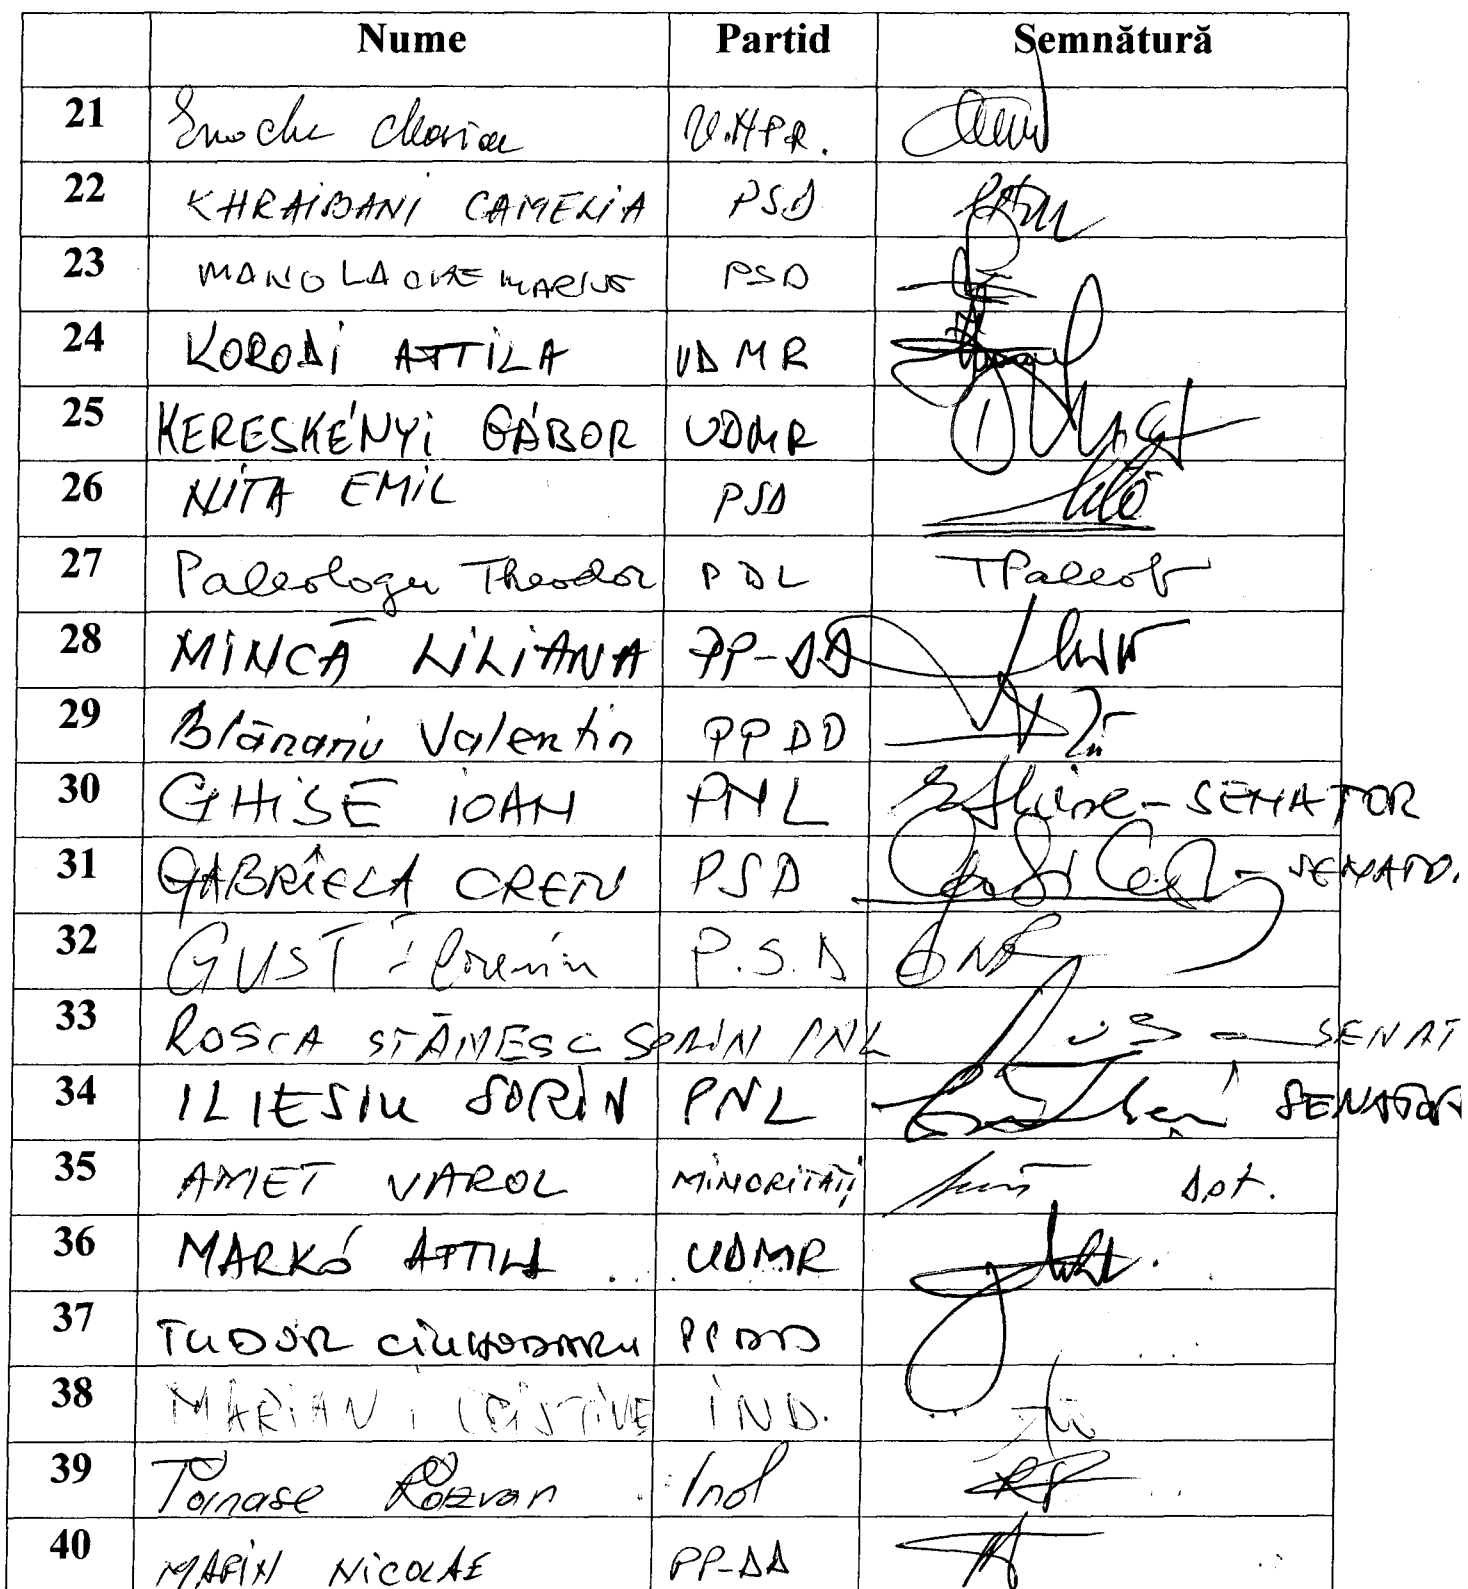 Nume Partid Semnătură
21 Enache Marian U.NPR.
22 KHRAIBANI CAMELIA PSD
23 MANOLACHE MARIUS PSD
24 KORODI ATTILA UDMR
25 KERESKÉNYI GÁBOR UDMR
26 NITA EMIL PSD
27 Paleologu Theodor PDL TPaleol
28 MINCĂ LILIANA PP-DD
29 Blănariu Valentin PPDD
30 GHISE IOAN PNL Ghise - SENATOR
31 GABRIELA CRETU PSD - SENATO
32 GUST Florin P.S.D
33 ROSCA STĂNESC SORIN PNL - SENAT
34 ILIESIU SORIN PNL SENATOR
35 AMET VAROL MINORITĂȚI Dpt.
36 MARKÓ ATTILA UDMR
37 TUDOR CIUHODARU PPDD
38 MARIAN IND.
39 Tănase Răzvan Ind
40 MARIN NICOLAE PP-DD